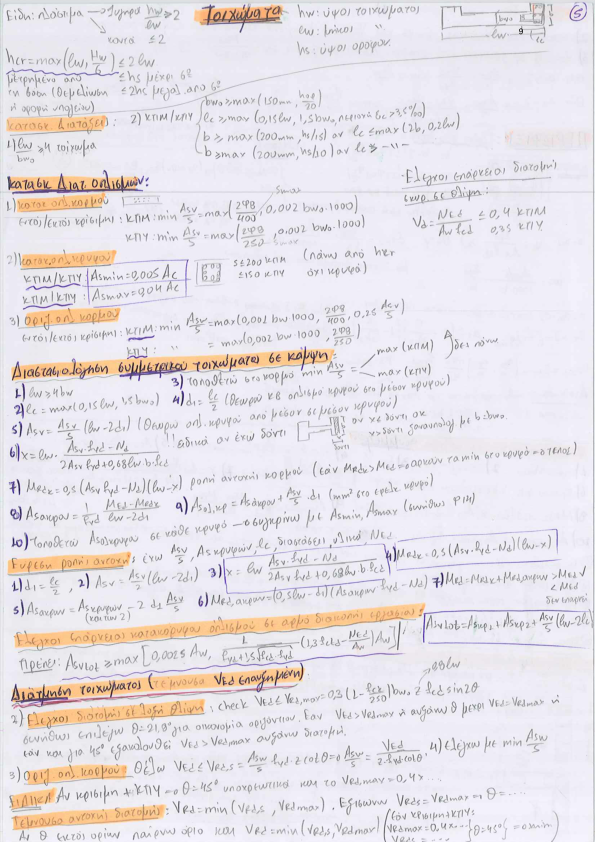 Είδη: πλαίσιμα → λυγηρά hw/lw ≥ 2
κοντά ≤ 2
Τοιχώματα
hw: ύψος τοιχώματος
lw: μήκος "
hs: ύψος ορόφου
5
hcr = max(lw, Hw/6) ≤ 2lw
μετρημένο από ≤ hs μέχρι 6
τη βάση (θεμελίωση ≤ 2hs μεγαλ. από 6
ή οροφή υπογείου)
κατασκ. διατάξεις:
1) lw/bwo ≥ 4 τοίχωμα
2) ΚΠΜ/ΚΠΥ
bwo ≥ max(150mm, hορ/20)
lc ≥ max(0,15lw, 1,5bwo, περιοχή εc > 3,5‰)
b ≥ max(200mm, hs/15) αν lc ≤ max(2b, 0,2lw)
b ≥ max(200mm, hs/10) αν lc ≥ -//-
Κατασκ. Διατ. οπλισμών:
1) κατακ. οπλ. κορμού
εντός/εκτός κρίσιμης: ΚΠΜ: min Asv/s = max(2Φ8/400, 0,002 bwo·1000)
ΚΠΥ: min Asv/s = max(2Φ8/250, 0,002 bwo·1000)
smax
smax
Έλεγχος επάρκειας διατομής
σκυρ. σε θλίψη:
Vd = NEd/Aw fcd ≤ 0,4 ΚΠΜ
0,35 ΚΠΥ
2) κατακ. οπλ. κρυφού
ΚΠΜ/ΚΠΥ: Asmin = 0,005 Ac
ΚΠΜ/ΚΠΥ: Asmax = 0,04 Ac
s ≤ 200 ΚΠΜ (πάνω από hcr
≤ 150 ΚΠΥ όχι κρυφό)
3) Οριζ. οπλ. κορμού
εντός/εκτός κρίσιμη: ΚΠΜ: min Asw/s = max(0,001 bw 1000, 2Φ8/400, 0,25 Asv/s)
ΚΠΥ: " = max(0,002 bw 1000, 2Φ8/250)
Διαστασιολόγηση συμμετρικού τοιχώματος σε κάμψη:
1) lw ≥ 4bw
3) τοποθετώ στο κορμό min Asv/s = max(ΚΠΜ)
max(ΚΠΥ)
δες πάνω
2) lc = max(0,15lw, 1,5bwo)
4) d1 = lc/2 (θεωρώ κβ οπλισμό κρυφού στο μέσον κρυφού)
5) Asv = Asv/s (lw-2d1) (θεωρώ οπλ. κορμού από μέσον σε μέσον κρυφού)
6) x = lw · Asv·fyd - Nd / 2Asv fyd + 0,68lw·b·fcd
!! ειδικά αν έχω δόντι
αν x ≤ δόντι οκ
x > δόντι ξαναυπολογ. με b = bwo
δόντι
7) MRdκ = 0,5(Asv fyd - Nd)(lw-x) ροπή αντοχής κορμού (εάν MRdκ > MEd → βάζουμε τα min στο κρυφό → ΤΕΛΟΣ)
8) Asακρου = 1/fyd · MEd - MRdκ / lw-2d1
9) Asολ,κρ = Asακρου + Asv/s · d1
10) Τοποθετώ Asολκρυφού σε κάθε κρυφό → συγκρίνω με Asmin, Asmax (συνήθως Φ14)
Εύρεση ροπή αντοχή: έχω Asv/s, Asκρυφών, lc, διαστάσεις, υλικά, NEd
1) d1 = lc/2, 2) Asv = Asv/s (lw-2d1) 3) x = lw Asv·fyd - Nd / 2Asv fyd + 0,68lw·b·fcd 4) MRdκ = 0,5(Asv fyd - Nd)(lw-x)
5) Asακρων = Asκρυφών - 2·d1 Asv/s
(και των 2)
6) MRd,ακρων = (0,5lw-d1)(Asακρων fyd - Nd)
7) MRd = MRdκ + MRd,ακρων > MEd ✓
< MEd
δεν επαρκεί
Έλεγχος επάρκειας κατακόρυφου οπλισμού σε αρμό διακοπής εργασίας:
Πρέπει: Asvtot ≥ max[0,0025 Aw, 1/fyd+1,5√fcd·fyd (1,3fctd - NEd/Aw) Aw]
Asvtot = Asκρ1 + Asκρ2 + Asv/s (lw-2lc)
Διάτμηση τοιχώματος (τέμνουσα VEd επαυξημένη)
2) Έλεγχος διατομής σε λοξή θλίψη: check VEd ≤ VRd,max = 0,3(1 - fck/250) bwo z fcd sin2θ
0,8lw
συνήθως επιλέγω θ = 21,8° για οικονομία οριζόντιων. Εάν VEd > VRdmax ή αυξάνω θ μέχρι VEd = VRdmax ή
εάν και για 45° εξακολουθεί VEd > VRdmax αυξάνω διατομή.
3) Οριζ. οπλ. κορμού θέλω VEd ≤ VRd,s = Asw/s fyd·z·cotθ ⇒ Asw/s = VEd / z·fyd cotθ. 4) ελέγχω με min Asw/s
ΕΙΔΙΚΑ Αν κρίσιμη + ΚΠΥ → θ = 45° υποχρεωτικά και το VRdmax = 0,4×...
Τέμνουσα αντοχής διατομής: VRd = min(VRd,s, VRdmax). Εξισώνω VRds = VRdmax ⇒ θ = ....
Αν θ εκτός ορίων παίρνω όριο και VRd = min(VRd,s, VRdmax)
(εάν κρίσιμη + ΚΠΥ:
VRdmax = 0,4×...
VRd,s = ....
} θ = 45° }